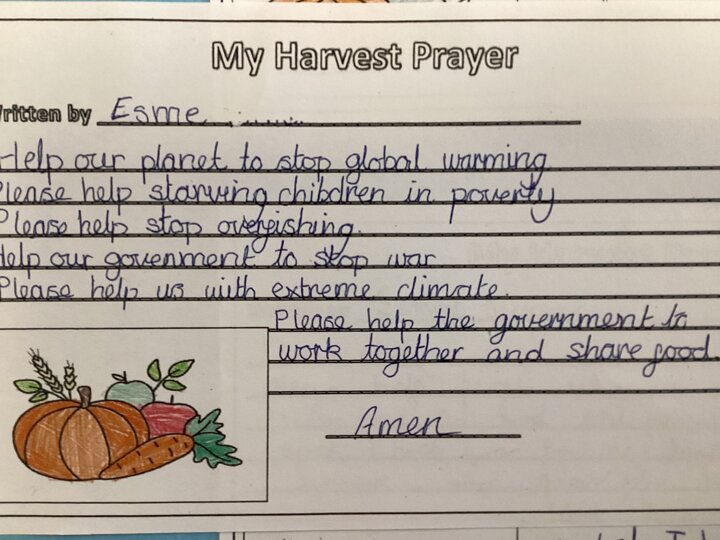 My Harvest Prayer
Written by Esme
Help our planet to stop global warming
Please help starving chibdren in poverty
Please help stop overfishing.
Help our govenment to stop war
Please help us with extreme climate.
Please help the government to
work together and share food.
Amen